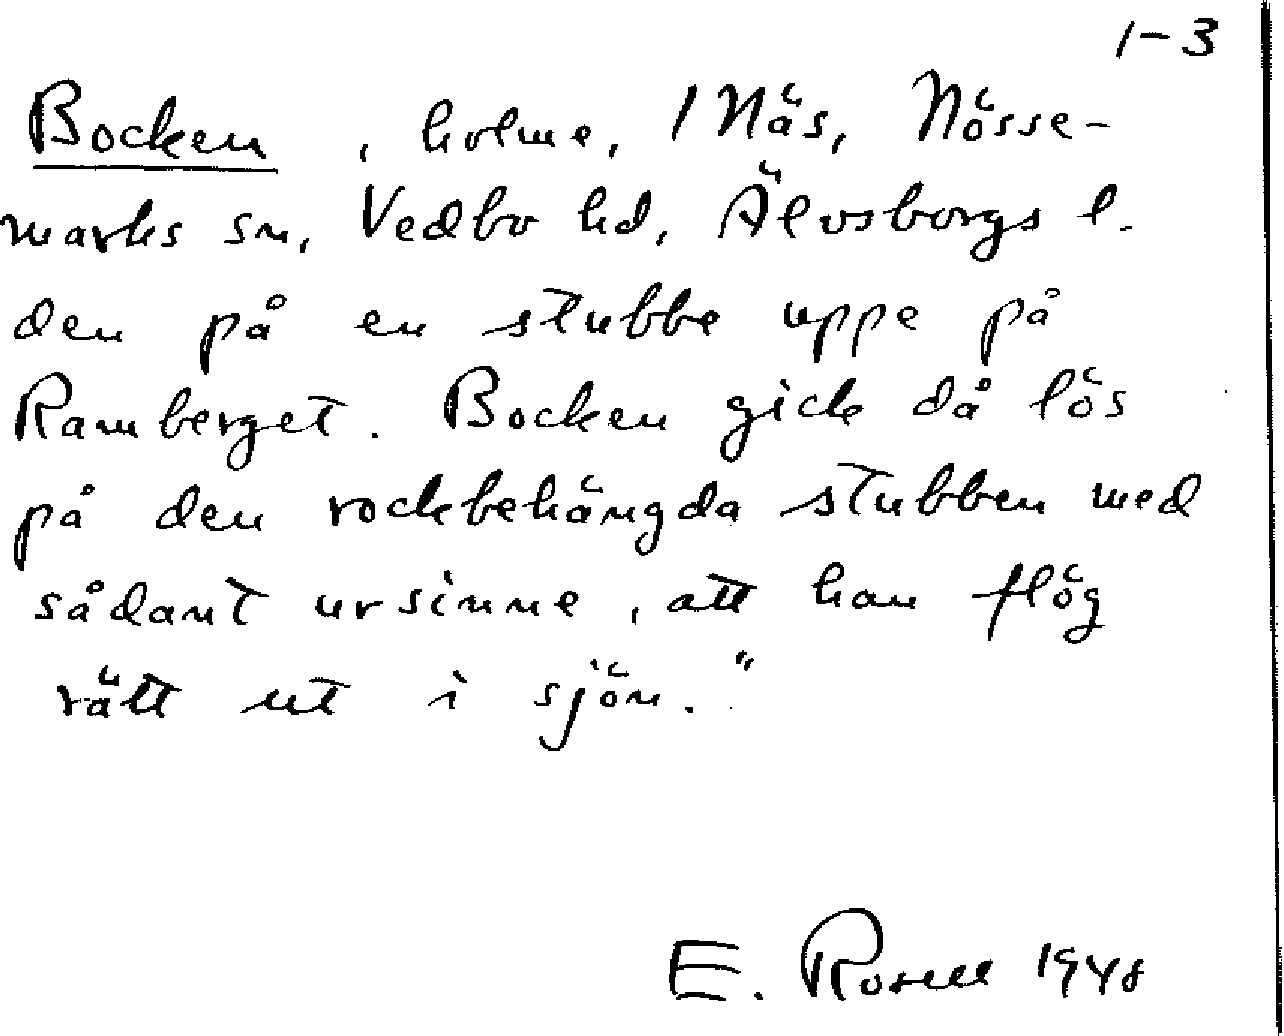 1-3
Bocken, holme, 1 Näs, Nösse-
marks sn, Vedbo hd, Älvsborgs l.
den på en stubbe uppe på
Ramberget. Bocken gick då lös
på den rockbehängda stubben med
sådant ursinne, att han flög
rätt ut i sjön."
E. Rosell 1948